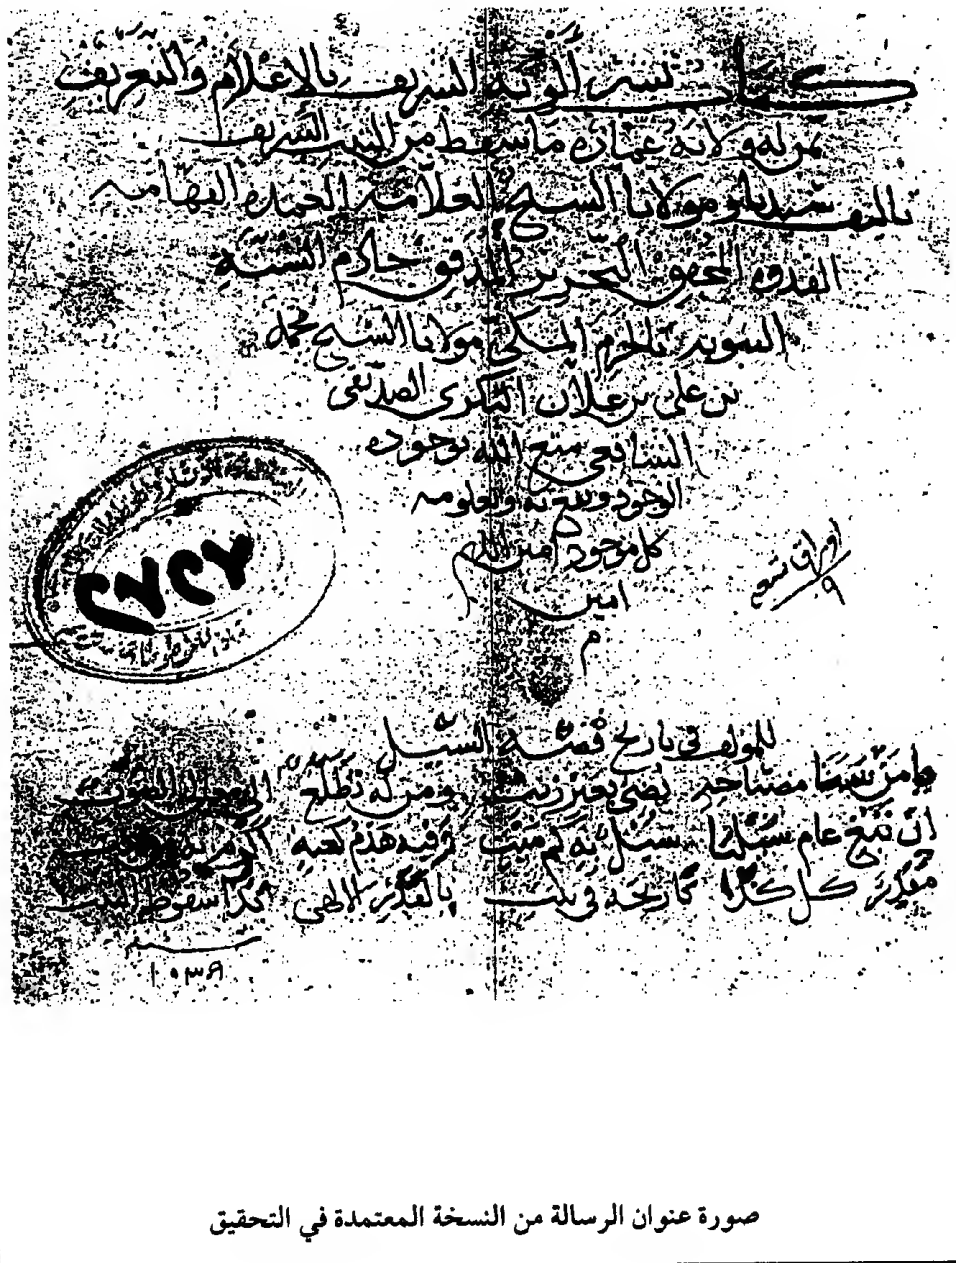 كتاب نشر ألوية التشريف بالإعلام والتعريف
بمن له ولاية عمارة ما سقط من البيت الشريف
تأليف سيدنا ومولانا الشيخ العلامة العمدة الفهامة
القدوة المحقق النحرير المدقق خادم السنة
النبوية بالحرم المكي مولانا الشيخ محمد
بن علي بن علان البكري الصديقي
الشافعي متع الله بوجوده
الوجود ونفع به وبعلومه
كل موجود امين اللهم
امين
م
اوراق تسع
٩
٢٨٢٧
للمؤلف في تاريخ قصة السيل
يا من سما مصباحه يضي بغير زيت ومن له تطلع الى
ان تبغ عام سيلنا سيل به كم ميت وفيه هدم كعبة اكرم به من بيت
مقدر كل كذا تاريخه في بيت بالقدر الالهي كذا سقوط البيت
سنة
١٠٣٩
صورة عنوان الرسالة من النسخة المعتمدة في التحقيق